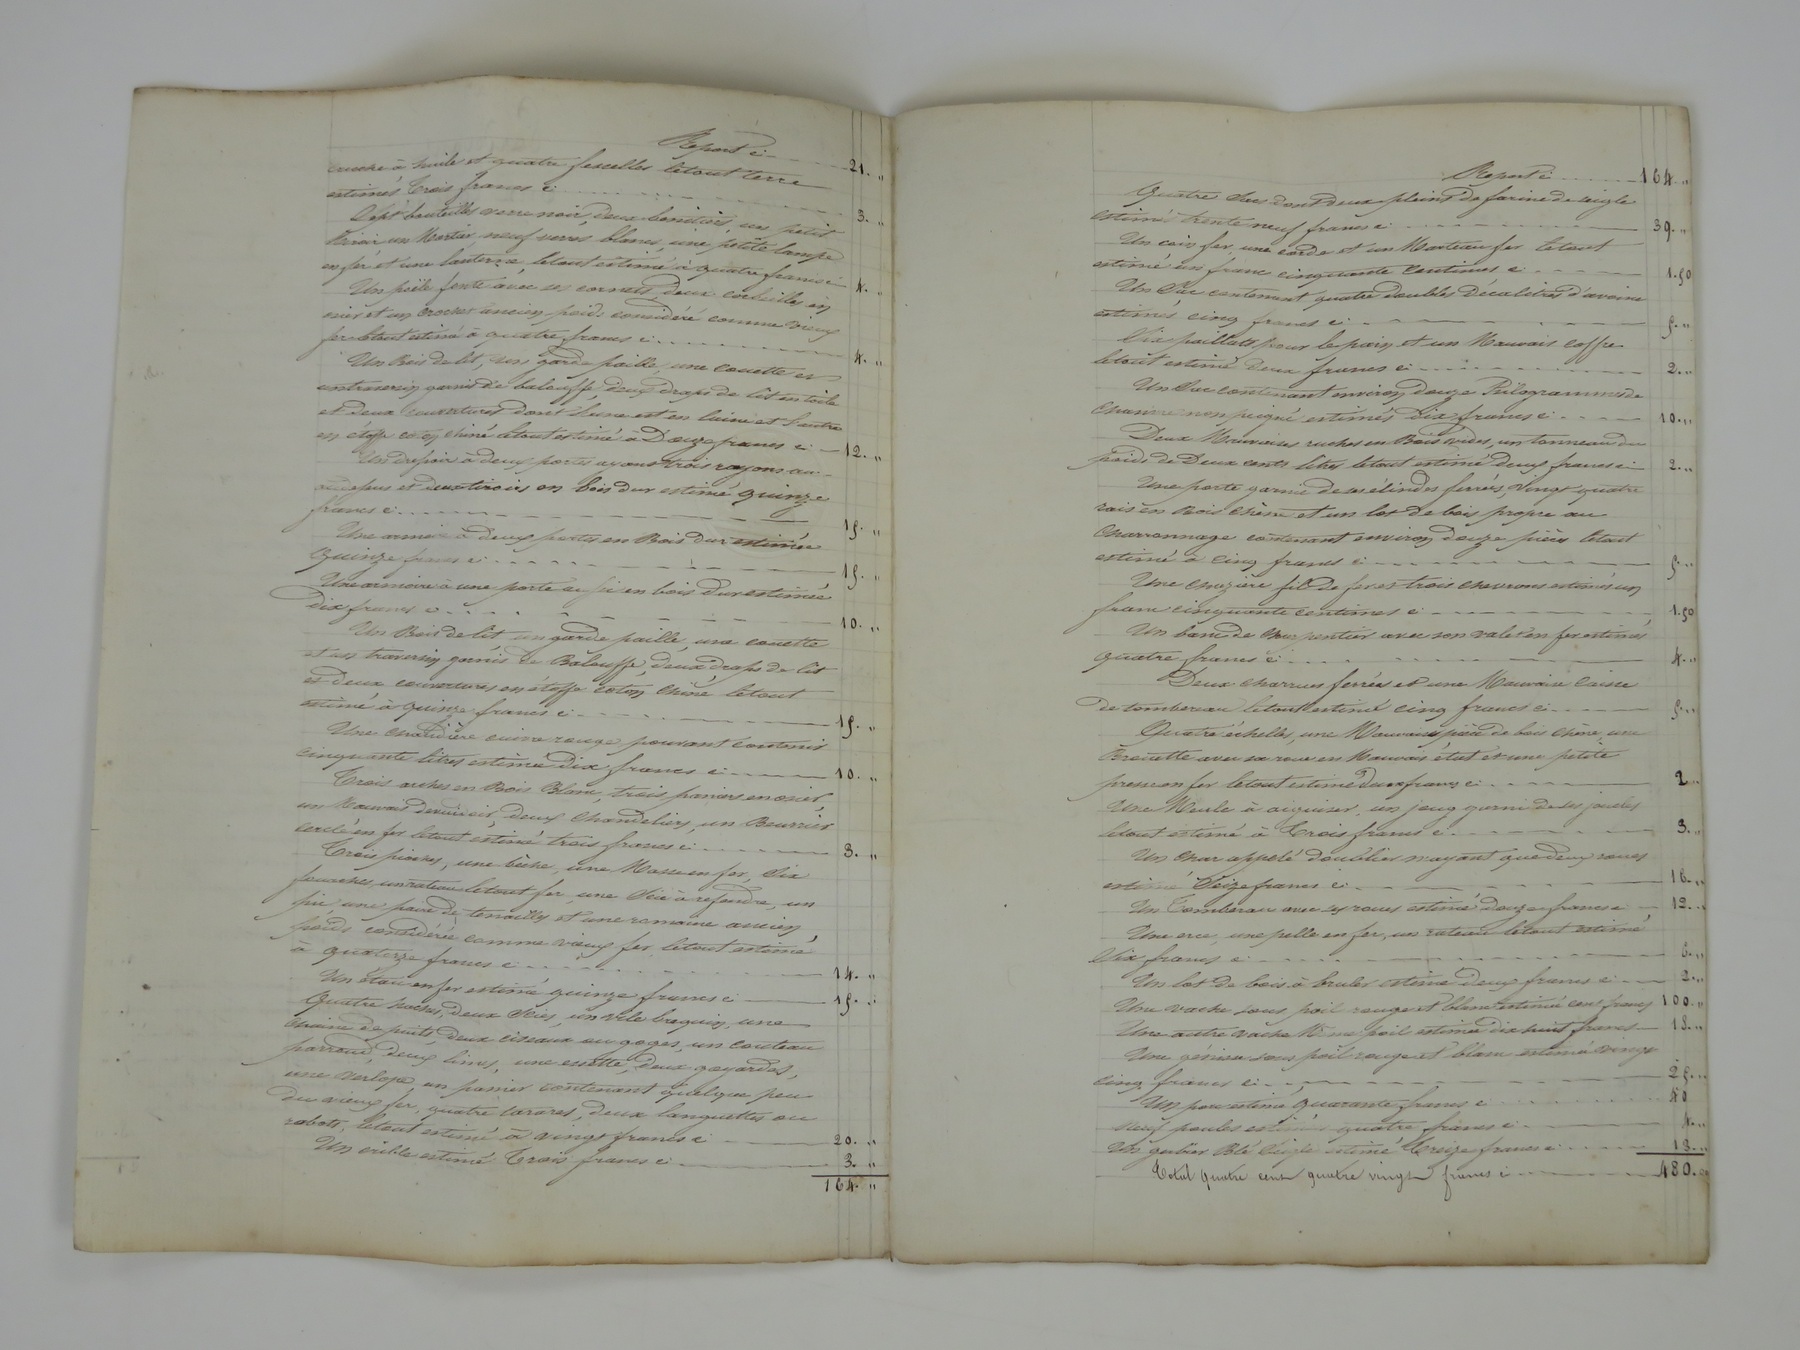 Report ci 21. "
cruche à huile et quatre fescelles letout terre
estimés trois francs ci 3. "
Sept bouteilles verre noir, deux bénitiers, un petit
miroir un Mortier neuf verres blancs, une petite lampe
en fer et une lanterne, letout estimé à quatre francs ci 4. "
Un poële fonte avec ses cornets, deux corbeilles en
osier et un crochet ancien poids considéré comme vieux
fer letout estimé à quatre francs ci 4. "
Un Bois de lit, un garde paille, une couette et
un traversin garnis de balouffe, deux draps de lit en toile
et deux couvertures dont l'une est en laine et l'autre
en étoffe coton chiné letout estimé à Douze francs ci 12. "
Un dressoir à deux portes ayant trois rayons au
dessus et deux tiroirs en bois dur estimé quinze
francs ci 15. "
Une armoire à deux portes en Bois dur estimée
Quinze francs ci 15. "
Une armoire à une porte en bois dur estimée
dix francs ci 10. "
Un Bois de lit un garde paille, une couette
et un traversin garnis de Balouffe, deux draps de lit
et deux couvertures en étoffe coton chiné letout
estimé à quinze francs ci 15. "
Une chaudière cuivre rouge pouvant contenir
cinquante litres estimée dix francs ci 10. "
Trois arches en Bois Blanc, trois paniers en osier,
un Mauvais deviudoir, deux chandeliers, un Beurrier
cerclé en fer letout estimé trois francs ci 3. "
Trois pioches, une bêche, une Masse en fer, six
fourches, un rateau letout fer, une scie à refendre, un
pic une paire de tenailles et une romaine ancien
poids considérée comme vieux fer letout estimé
à quatorze francs ci 14. "
Un étau en fer estimé quinze francs ci 15. "
Quatre haches, deux scies, un vile brequin, une
chaîne de puits, deux ciseaux ou goges, un couteau
parroud, deux limes, une essette, deux goyardes,
une verlope, un panier contenant quelque peu
de vieux fer, quatre tarares, deux languettes ou
rabots, letout estimé à vingt francs ci 20. "
Un crible estimé Trois francs ci 3. "
164. "
Report ci 164. "
Quatre sacs dont deux pleins de farine de seigle
estimés trente neuf francs ci 39. "
Un coin fer, une corde et un Marteau fer letout
estimé un franc cinquante centimes ci 1.50
Un Sac contenant quatre doubles Décalitres d'avoine
estimés cinq francs ci 5. "
Six paillats pour le pain et un Mauvais coffre
letout estimé deux francs ci 2. "
Un Sac contenant environ douze Kilogrammes de
chanvre non peigné estimés dix francs ci 10. "
Deux Mauvaises ruches en Bois vides, un tonneau du
poids de Deux cents litres letout estimé deux francs ci 2. "
Une porte garnie de ses élindes ferrées, vingt quatre
rais en Bois chêne et un lot de bois propre au
charronnage contenant environ douze pièces letout
estimé à cinq francs ci 5. "
Une enuzière fil de fer et trois chevrons estimés un
franc cinquante centimes ci 1.50
Un banc de charpentier avec son valet en fer estimés
quatre francs ci 4. "
Deux charrues ferrées et une Mauvaise caisse
de tombereau letout estimé cinq francs ci 5. "
Quatre échelles, une Mauvaise pièce de bois chêne, une
Brouette avec sa roue en Mauvais état et une petite
presse en fer letout estimé deux francs ci 2 "
Une Meule à aiguiser, un joug garni de ses jouëles
letout estimé à Trois francs ci 3. "
Un char appelé doublier n'ayant que deux roues
estimé Seize francs ci 16. "
Un Tombereau avec ses roues estimé douze francs ci 12. "
Une erce, une pelle en fer, un rateau letout estimé
Six francs ci 6. "
Un lot de bois à bruler estimé deux francs ci 2. "
Une vache sous poil rouge et blanc estimée cent francs 100. "
Une autre vache même poil estimée dix huit francs 18. "
Une génisse sous poil rouge et blanc estimée vingt
cinq francs ci 25. "
Un porc estimé Quarante francs ci 40
neuf poules estimées quatre francs ci 4. "
Un gerbier Blé Seigle estimé Treize francs ci 13. "
Total quatre cent quatre vingt francs ci 480. "